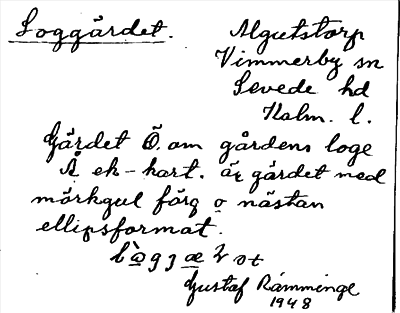 Loggärdet. Algutstorp
Vimmerby sn
Sevede hd
Kalm. l.
Gärdet Ö. om gårdens loge
Å ek-kart. är gärdet med
mörkgul färg o nästan
ellipsformat.
Gustaf Rämminge
1948